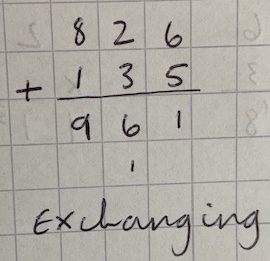 8 2 6
+ 1 3 5
9 6 1
1
Exchanging